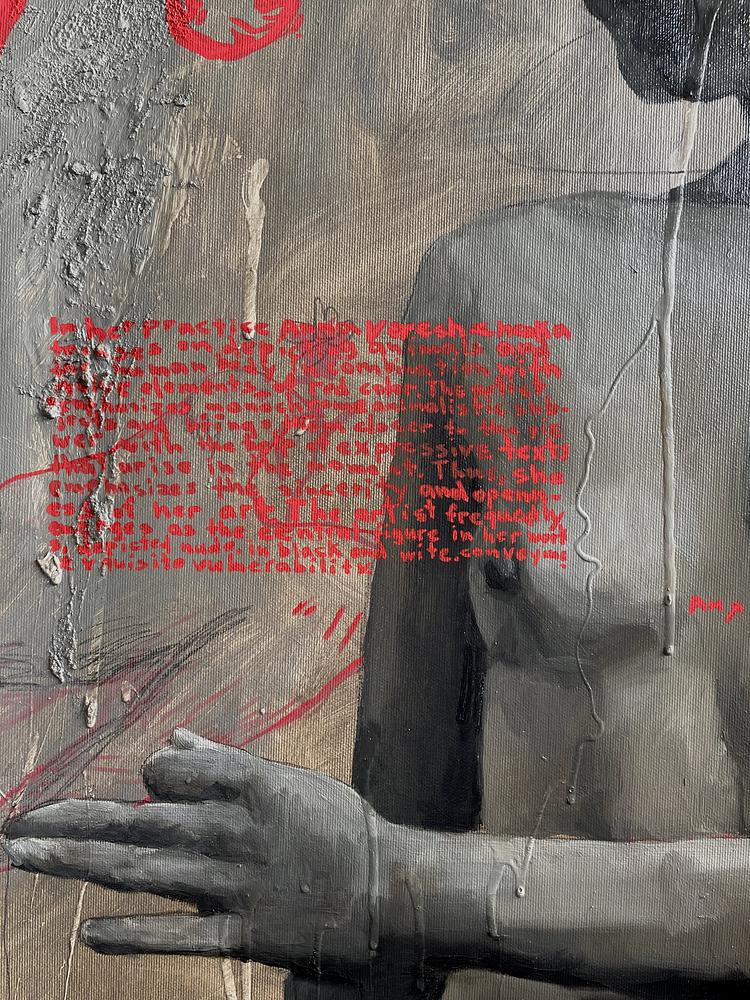 In her practice Anna Koreshchenoka
on depicting animals and
man body in combination with
elements of red color. The artist
emphasizes monochrome minimalistic sub-
and brings closer to the vie
wer with the help of expressive texts
they arise in the moment. Thus, she
emphasizes the sincerity and openn-
ess of her art. The artist frequently
emerges as the central figure in her work
depicted nude, in black and wite, conveying
exquisite vulnerability.